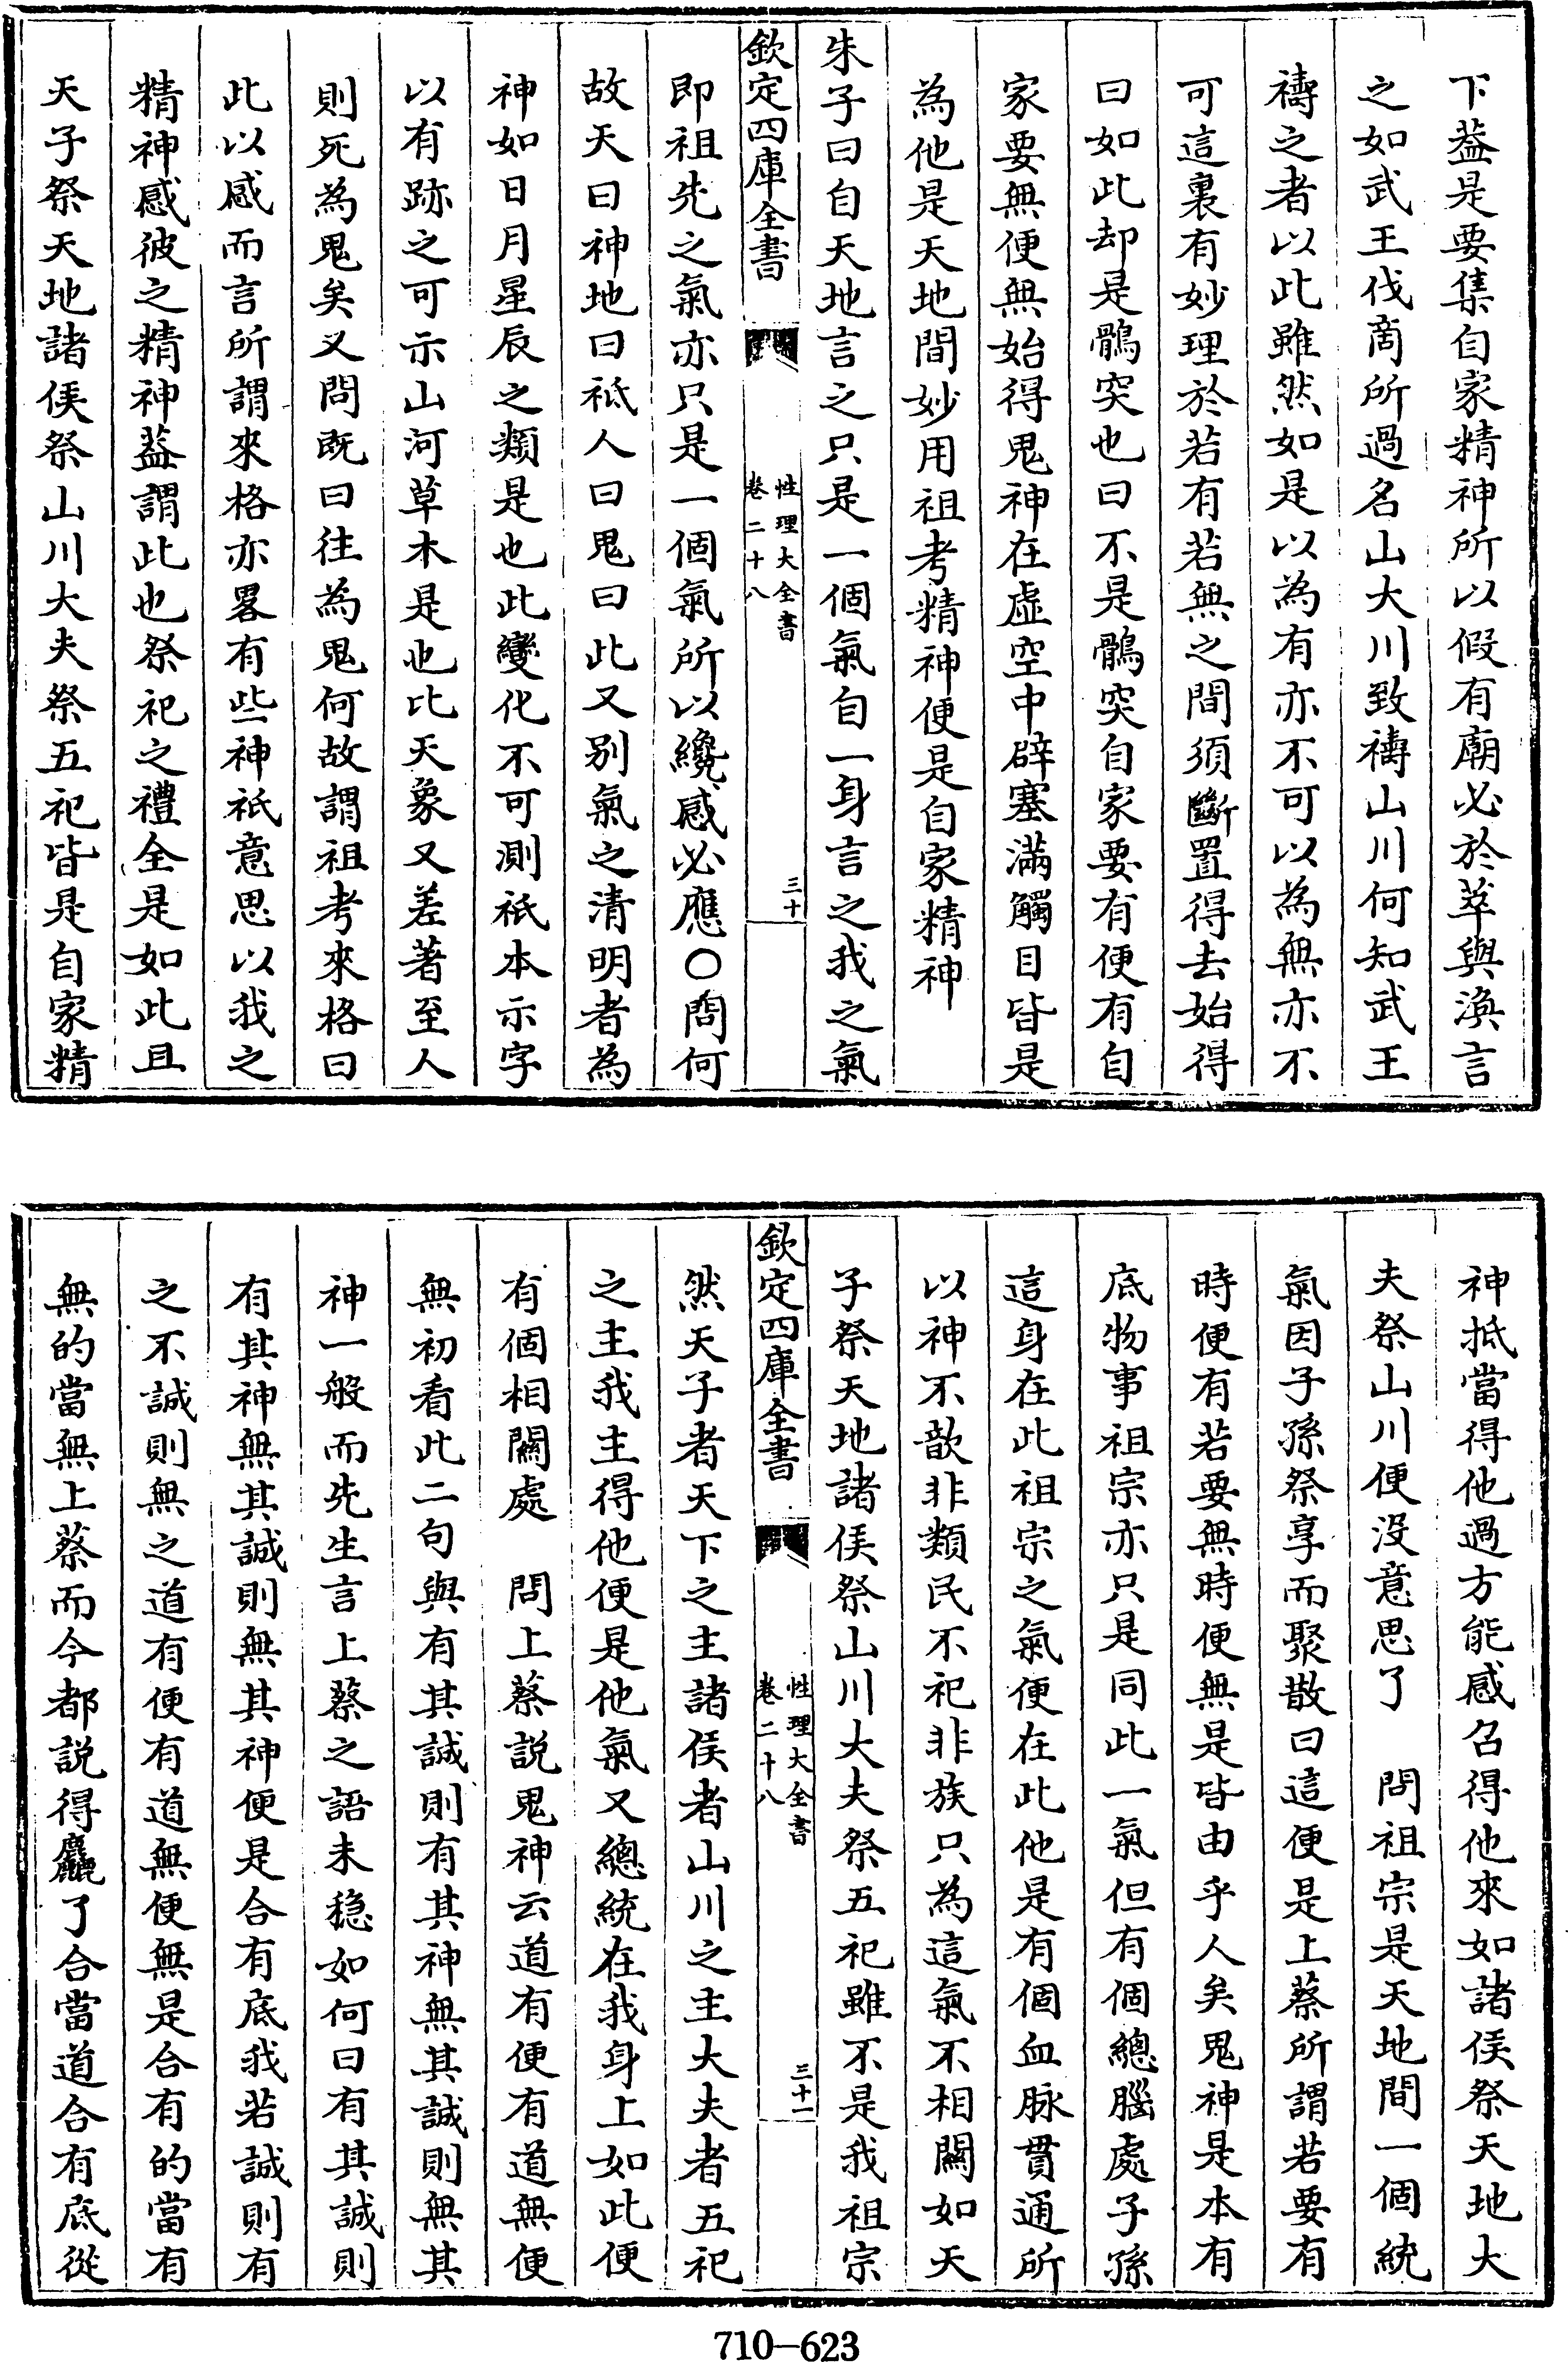 下葢是要集自家精神所以假有廟必於萃與渙言
之如武王伐商所過名山大川致禱山川何知武王
禱之者以此雖然如是以為有亦不可以為無亦不
可這裏有妙理於若有若無之間須斷置得去始得
曰如此却是鶻突也曰不是鶻突自家要有便有自
家要無便無始得鬼神在虛空中辟塞滿觸目皆是
為他是天地間妙用祖考精神便是自家精神
朱子曰自天地言之只是一個氣自一身言之我之氣
欽定四庫全書
性理大全書
卷二十八
三十
即祖先之氣亦只是一個氣所以纔感必應○問何
故天曰神地曰祗人曰鬼曰此又别氣之清明者為
神如日月星辰之類是也此變化不可測祗本示字
以有跡之可示山河草木是也比天象又差著至人
則死為鬼矣又問既曰往為鬼何故謂祖考來格曰
此以感而言所謂來格亦畧有些神祇意思以我之
精神感彼之精神葢謂此也祭祀之禮全是如此且
天子祭天地諸侯祭山川大夫祭五祀皆是自家精
神抵當得他過方能感召得他來如諸侯祭天地大
夫祭山川便没意思了　問祖宗是天地間一個統
氣因子孫祭享而聚散曰這便是上蔡所謂若要有
時便有若要無時便無是皆由乎人矣鬼神是本有
底物事祖宗亦只是同此一氣但有個總腦處子孫
這身在此祖宗之氣便在此他是有個血脉貫通所
以神不歆非類民不祀非族只為這氣不相關如天
子祭天地諸侯祭山川大夫祭五祀雖不是我祖宗
欽定四庫全書
性理大全書
卷二十八
三十一
然天子者天下之主諸侯者山川之主大夫者五祀
之主我主得他便是他氣又總統在我身上如此便
有個相關處　問上蔡説鬼神云道有便有道無便
無初看此二句與有其誠則有其神無其誠則無其
神一般而先生言上蔡之語未穏如何曰有其誠則
有其神無其誠則無其神便是合有底我若誠則有
之不誠則無之道有便有道無便無是合有的當有
無的當無上蔡而今都説得麤了合當道合有底從
710—623